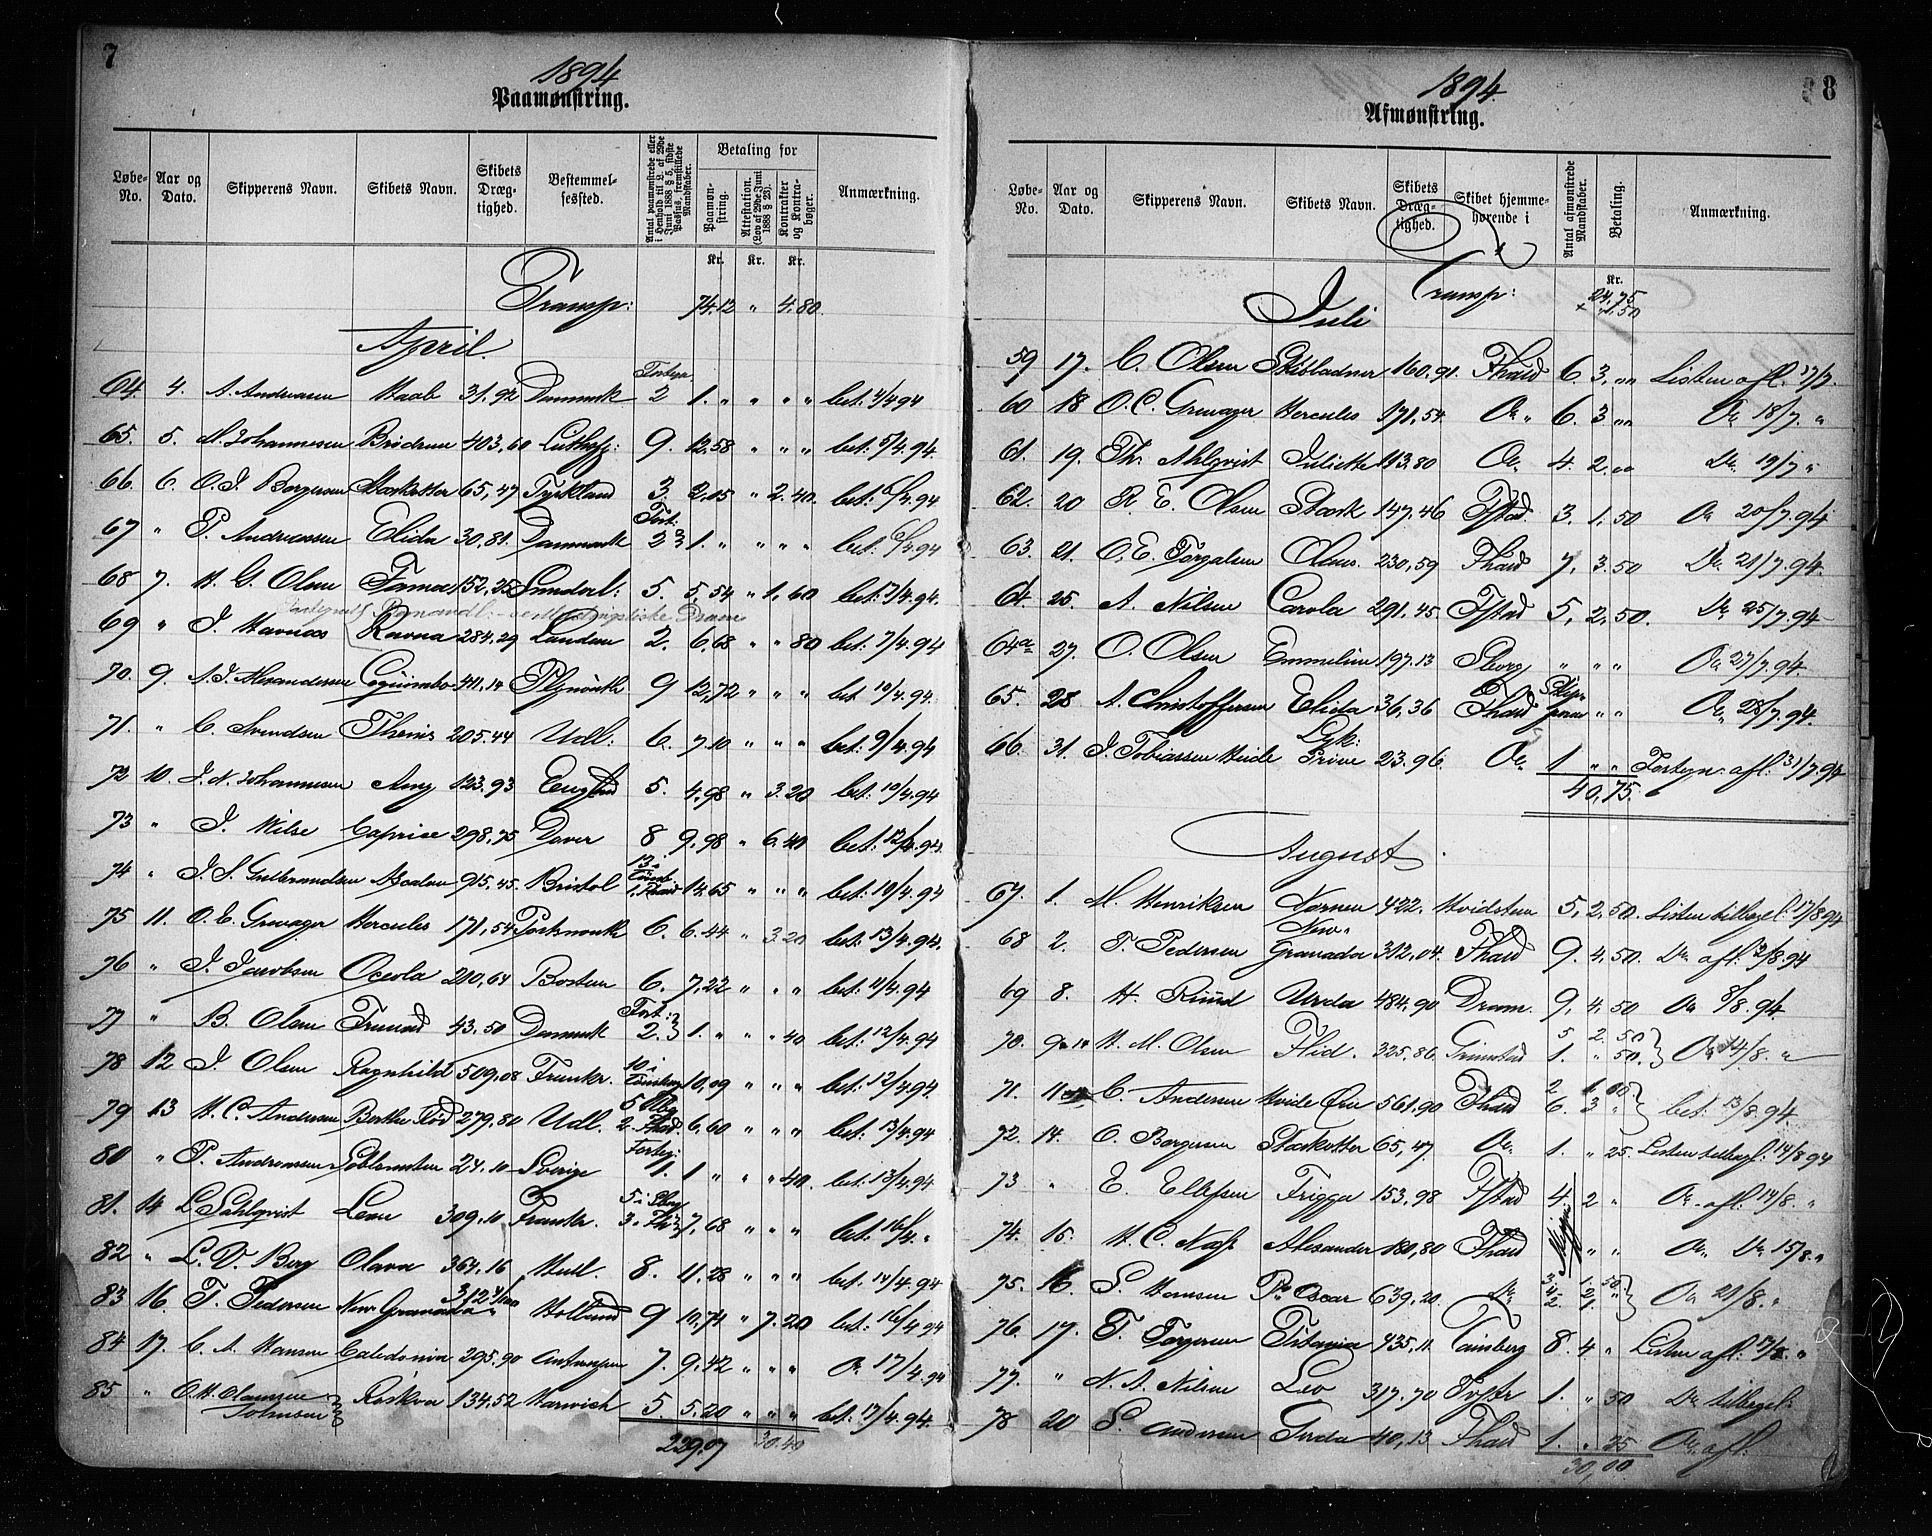 7
1894
Paamønstring.
Løbe-No. Aar og Dato. Skipperens Navn. Skibets Navn. Skibets Dræg-tighed. Bestemmel-sessted. Antal paamønstrede eller i Henhold til L. af 29de Juni 1888 § 5, sidste Passus, fremstillede Mandskaber. Betaling for Paamøn-string. Attestation. (Lov af 29de Juni 1888 § 23). Kontrakter og Kontra-bøger. Anmærkning.
Kr. Kr. Kr.
Transp: 74.12 " 4.80
April
64. 4. A. Andreasen Haab 31.92 Danmark 2 1. " " " " bet: 4/4 94
65. 5. M. Johannesen Brødrene 403,60 9. 12,58 " " " bet: 5/4.94
66. 6. O. J. Borgersen Stærkodder 65,47 Tyrkland 3. 2.15 " 2.40. bet: 6/4.94
67 " P. Andreassen Elida 30,81. Danmark Fort: 2 1. " " " " bet: 6/4.94
68 7. H. G. Olsen Fama 152,25 Sunderl: 5. 5,54 " 1,60 bet: 7/4.94.
69 " J. Havnaas Ravna 284.29 London 2. 6.68 " " 80 bet: 7/4.94
70. 9. A. J. Alexandersen Coquimbo 411,14 Plymouth 9 12,72 " " " bet 10/4.94.
71. " C. Svendsen Themis 205.44 Udl: 6. 7.10 " " " bet: 9/4.94
72 10. J. N. Johannesen Amy 123.93 England 5. 4,98 " 3.20 bet: 10/4.94
73 " J. Wilse Caprice 298,75 Dover 8 9,98 " 6.40 bet: 12/4.94
74 " J. S. Gulbrandsen Ascalon 915.45 Bristol 13 i 14.65 " " " bet: 10/4.94
75 11. O. C. Grevager Hercules 171,54 Portsmouth 6. 6.44 " 3.20 bet: 13/4.94.
76 " J. Jacobsen Oceola 210,64 Boston 6. 7,22 " " " bet: 11/4.94
77 " B. Olsen Trunad 43.50 Danmark Fort: 2 1. " " " 40 bet: 12/4.94
78 12 J. Olsen Ragnhild 509,08 Frankr. 10 i Tønsberg 10,09 " " " bet: 12/4.94
79 13 H. C. Andersen Berthe Rød 279,80 Udl. 5 2 6,60 " " " bet: 13/4.94
80 " P. Andreasen 24.10 Sverige 1. 1 " " " 40. bet: 13/4.94
81. 14 C. Sahlqvist Leon 309.10 Frankr. 5 i Sborg 3. 7,68 " " " bet: 16/4. "
82 " L. D. Berg Olava 364.16 Hull. 8. 11.28 " " " bet: 14/4.94
83 16. T. Pedersen New Granada 312 4/100 Holland 9 10,74 " 7.20 bet: 16/4.94
84 17. C. A. Hansen Caledonia 295.90 Antwerpen 7. 9,42 " " " Do 17/4.94
85 " O. H. Olaussen Johnsen Roskva 134.52 Harwich 5. 5,20 " " " bet: 17/4.94.
229.07 30.40
8
1894.
Afmønstring.
Løbe-No. Aar og Dato. Skipperens Navn. Skibets Navn. Skibets Dræg-tighed. Skibet hjemme-hørende i Antal afmønstrede Mandskaber. Betaling. Anmærkning.
Kr.
Transp: 24,75
Juli
59 17. C. Olsen Skibladner 160.91. Fhald 6. 3, "" Listen afl: 17/7.
60 18 O. C. Grevager Hercules 171,54 Do " 6. 3 "" Do 18/7. "
61. 19. Th. Ahlqvist Juliette 113.80 Do 4. 2. "" Do 19/7 "
62. 20 R. E. Olsen Stærk 147.46 Fstad 3. 1,50 Do 20/7.94
63. 21. O. E. Torgalsen Olaus. 230,59 Fhald 7, 3.50 Do 21/7.94.
64. 25. A. Nilsen Carola 291.45. Fstad 5, 2,50. Do 25/7.94
64a 27. O. Olsen Emmeline 197.13 Sborg " " " Do 27/7.94.
65. 28 A. Christoffersen Elida 36,36 Fhald " " Do 28/7.94.
66. 31. J. Tobiassen Hvide Lyk: Prøve 23.96. Do 1 " " afl: 31/7.94
40,75.
August
67. 1. M. Henriksen Nornen 422. Hvidsten 5, 2,50. Listen tilbagel: 17/8 94
68 2. T. Pedersen New Granada 312,04. Fhald 9. 4,50. Do afl: 2/8.94
69 8. H. Ruud Urda 484,90 Dram. 9, 4,50 Do 8/8.94
70. H. M. Olsen Flid. 325.86. Grimstad 5 2.50 1. " 50. Do 14/8. "
71. 11 C. Andersen Hvide Ørn 561.90 Fhald 2 6. 3 " bet: 13/8.94.
72. 14. O. Borgersen Stærkodder 65,47. Do 1. " 25. Listen tilbagl: 14/8 94
73 " E. Ellefsen Frigga 153,98 Fstad 4. 2 " Do afl: 14/8. "
74. 15. H. C. Næss Alexander 180,80 Fhald " " Do Do 15/8. "
75. 16. S. Hansen Pr Oscar 639.20. Do Do 21/8. "
76. 17. T. Torgersen Titania 435.11. Tønsberg 8. 4 " Listen afl: "
77. " N. A. Nilsen Leo 317.70 1. " 50 Do tilbagel:
78 20 S. Andersen Gerda 40,13 Fhald 1. . 25 Do. afl:
30,00